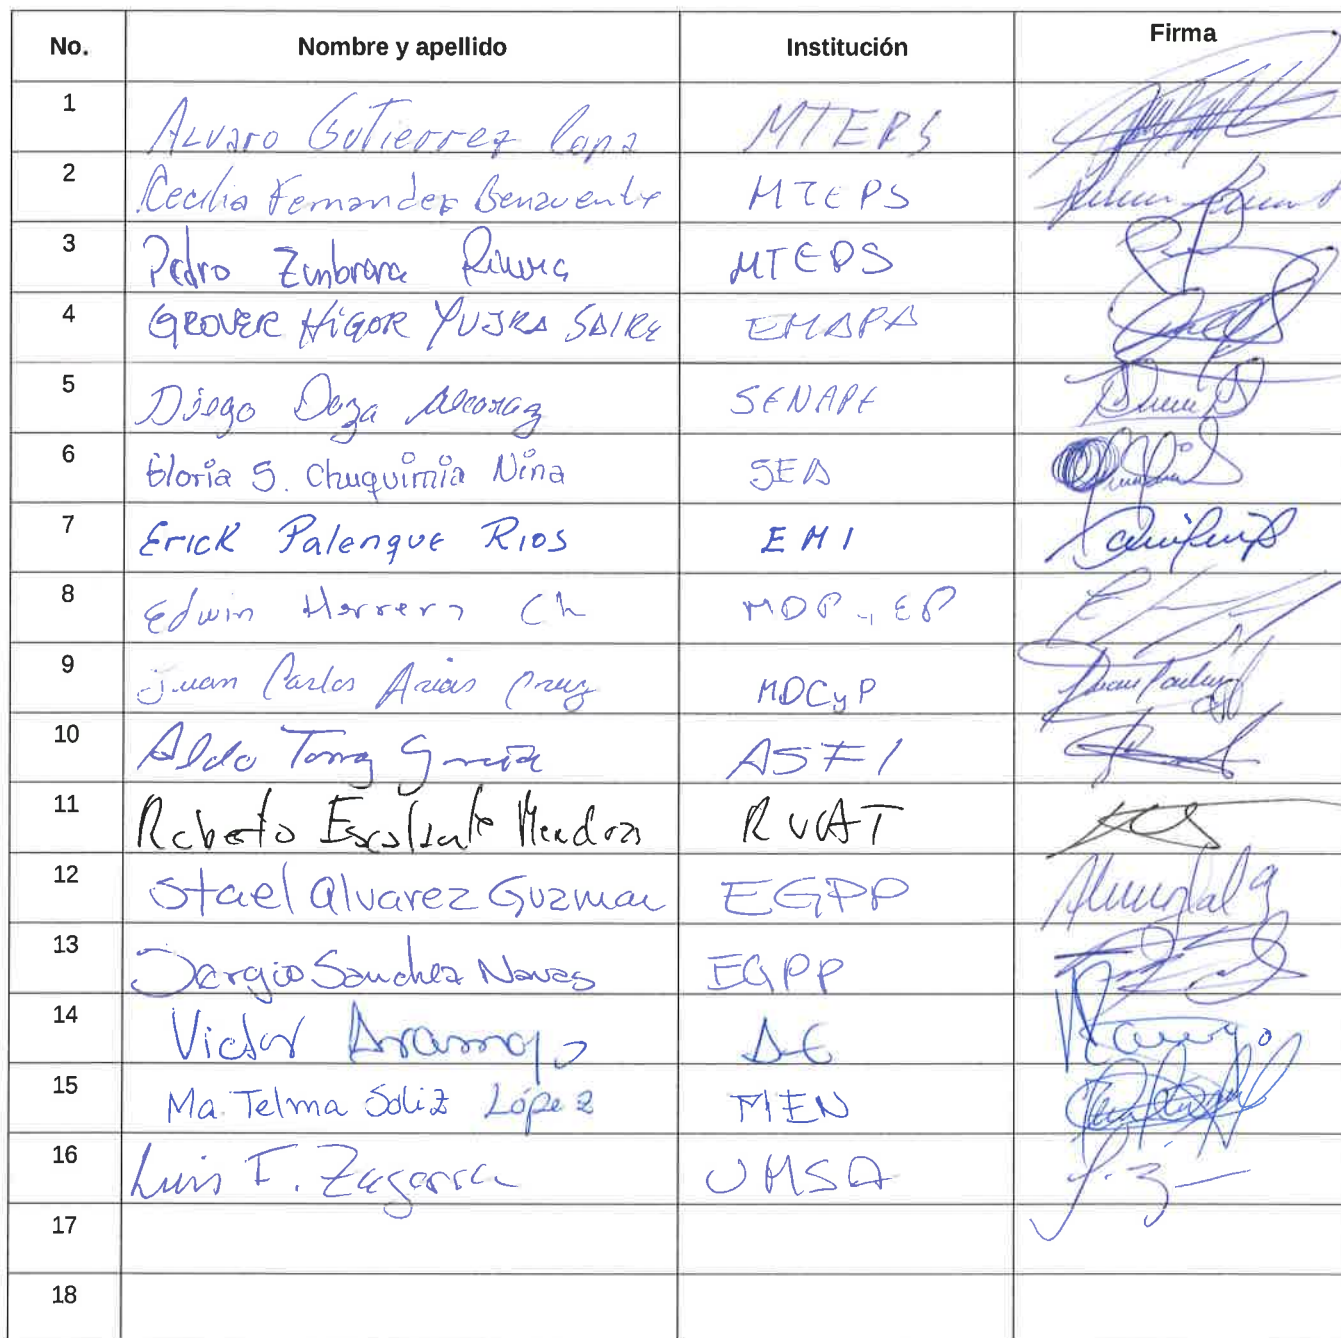 No. Nombre y apellido Institución Firma
1 Alvaro Gutierrez MTEPS
2 Cecilia Fernandez Benavente MTEPS
3 Pedro MTEPS
4 GROVER HIGOR YUJRA SAIRE EMAPA
5 Diego Daza SENAPE
6 Gloria S. Chuquimia Nina SEA
7 Erick Palenque Rios EMI
8 Edwin Herrera Ch MDP
9 Juan Carlos Arias Cruz MDCyP
10 Aldo ASFI
11 Roberto Escalante Mendoza
12 Stael Alvarez Guzman EGPP
13 Sergio Sanchez Navas EGPP
14 Victor Aramayo
15 Ma. Telma Soliz López
16 Luis F. UMSA
17
18